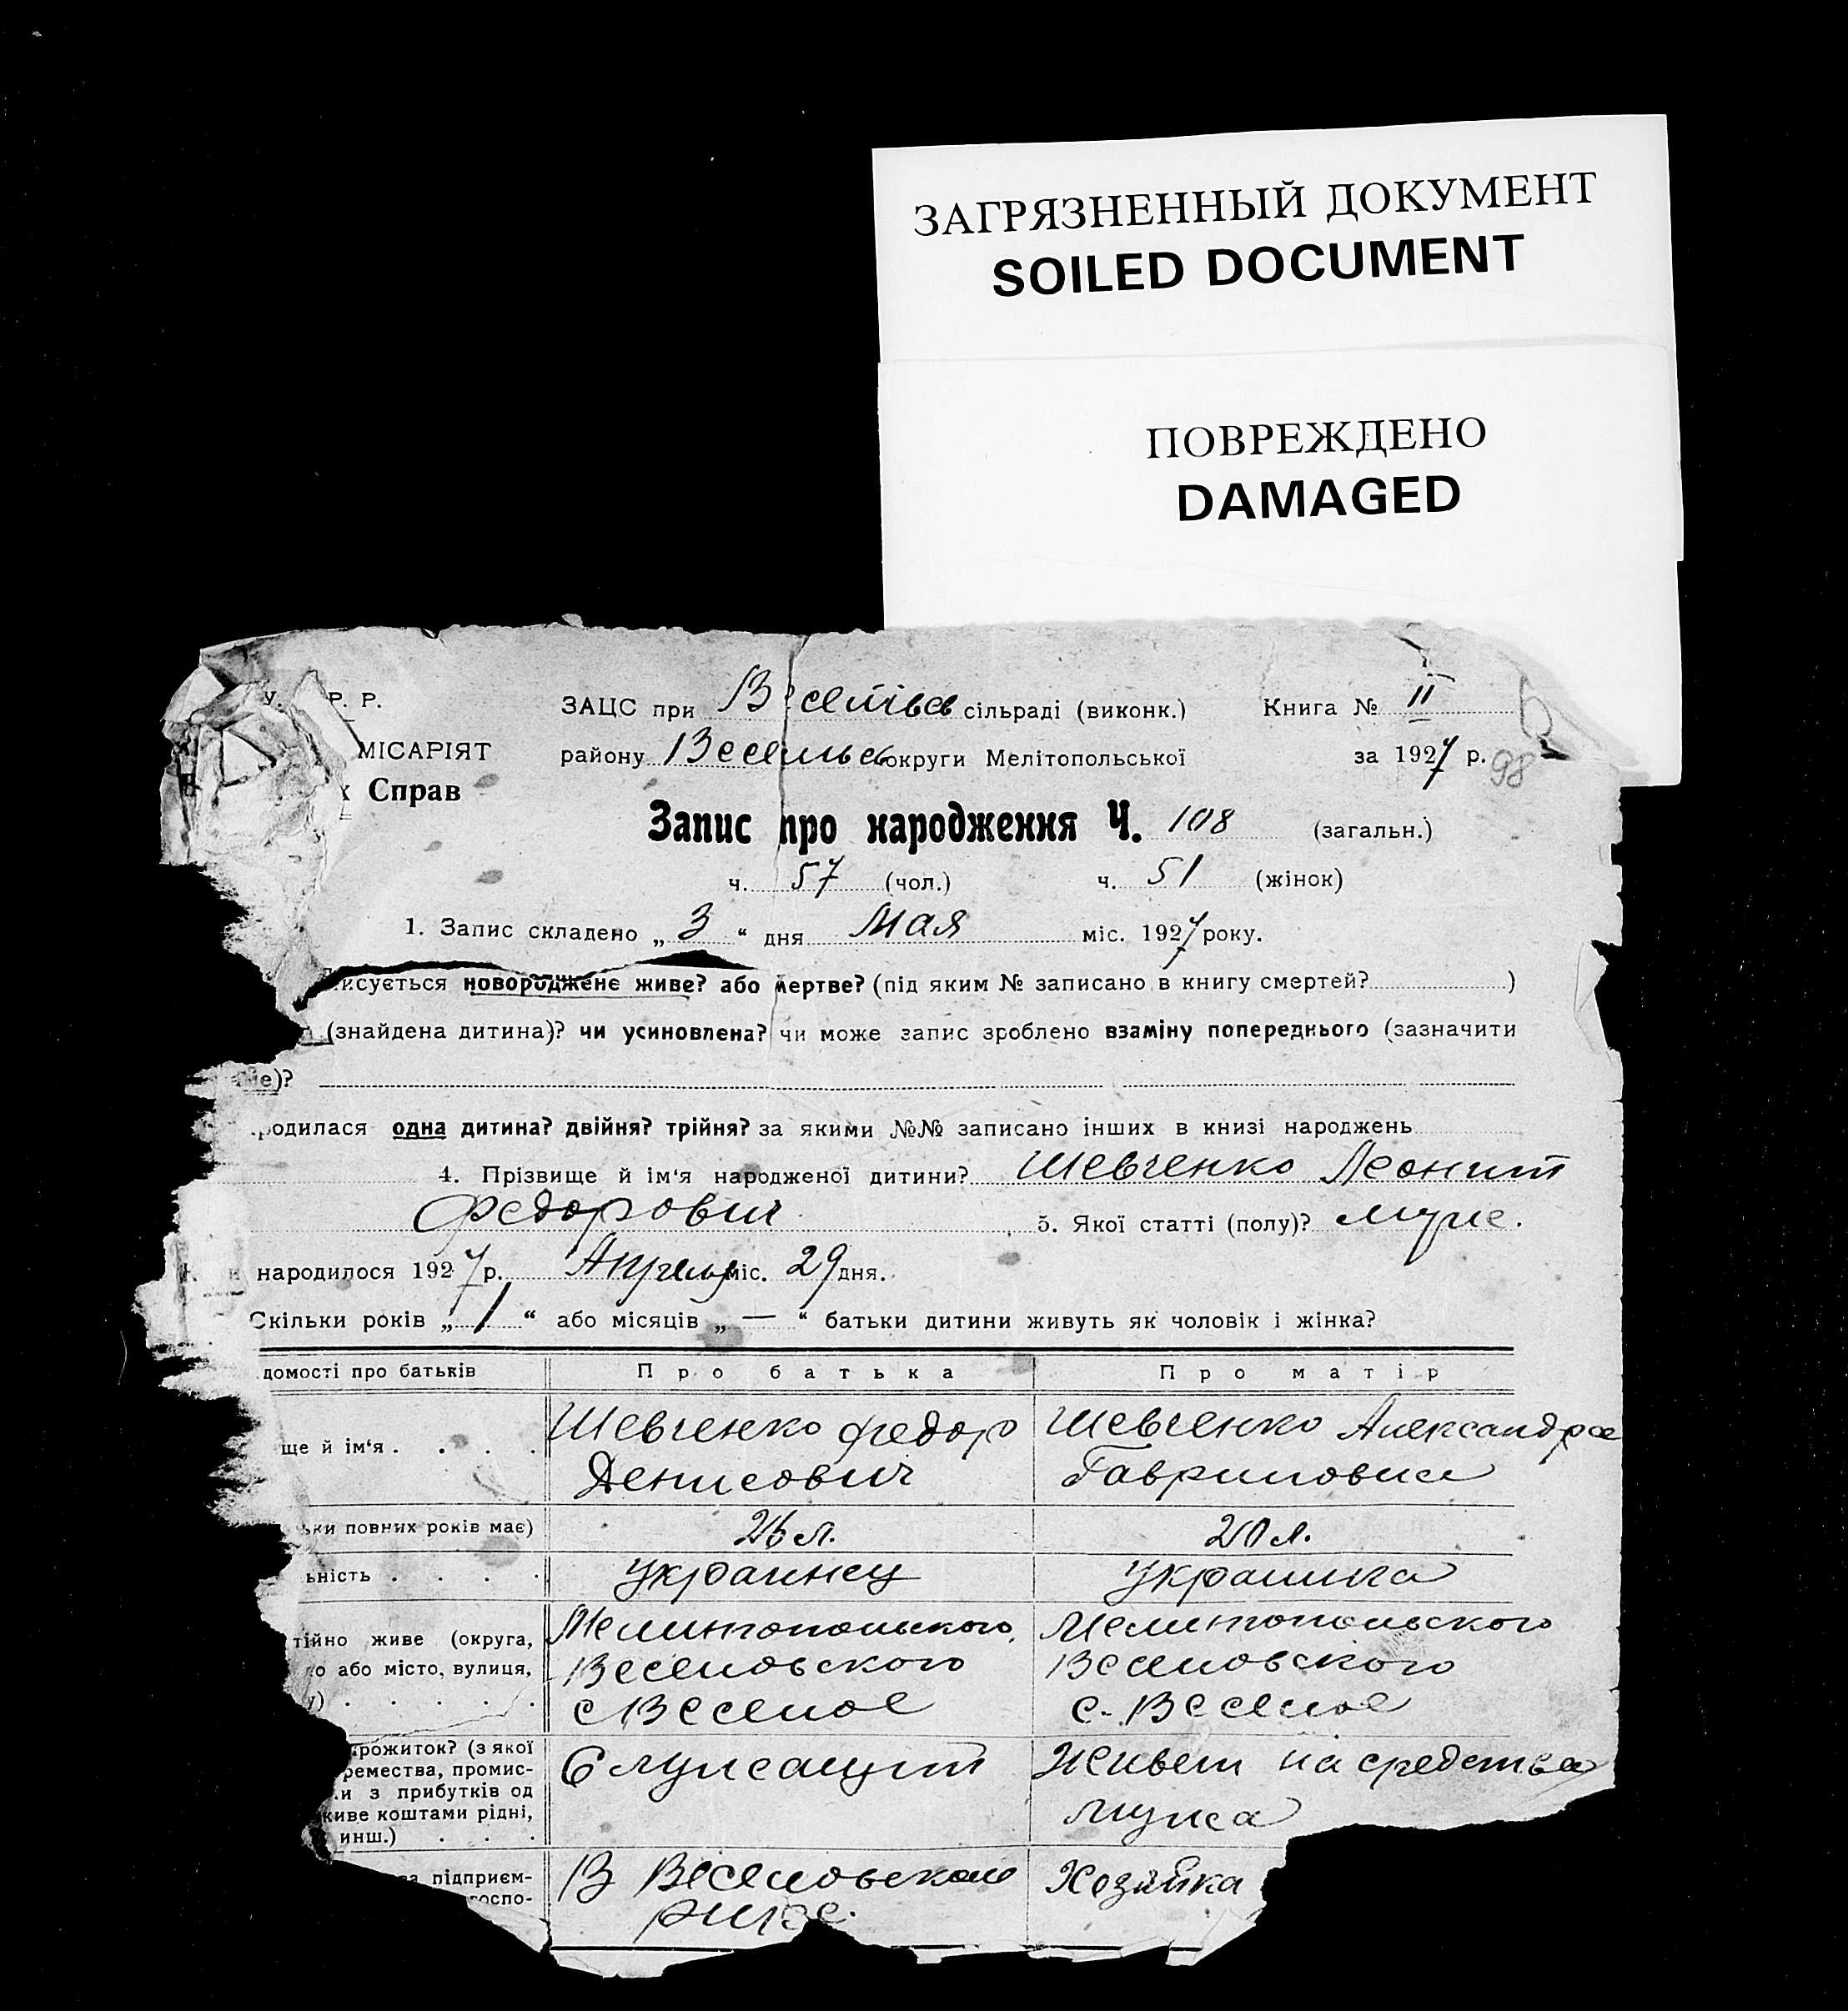 ЗАГРЯЗНЕННЫЙ ДОКУМЕНТ
SOILED DOCUMENT
ПОВРЕЖДЕНО
DAMAGED
У. Р. Р.
ЗАЦС при сільраді (виконк.) Книга № II
МІСАРІЯТ
району округи Мелітопольської за 1927 р. 98
х Справ
Запис про народження Ч. 108 (загальн.)
ч. 57 (чол.) ч. 51 (жінок)
1. Запис складено „ 3 “ дня Мая міс. 1927 року.
исується новороджене живе? або мертве? (під яким № записано в книгу смертей? )
(знайдена дитина)? чи усиновлена? чи може запис зроблено взаміну попереднього (зазначити
не)?
родилася одна дитина? двійня? трійня? за якими №№ записано інших в книзі народжень
4. Прізвище й ім‘я народженої дитини? Шевченко Леонит
Федорович 5. Якої статті (полу)? муж.
народилося 1927 р. Апреля міс. 29 дня.
Скільки років „ 1 “ або місяців „ — “ батьки дитини живуть як чоловік і жінка?
домості про батьків Про батька Про матір
ще й ім‘я . . . . Шевченко Федор Шевченко Александра
Денисович Гавриловна
ьки повних років має) 26 л. 20 л.
ьність . . . . Украинец Украинка
тійно живе (округа, Мелитопольского Мелитопольского
о або місто, вулиця, Веселовского Веселовского
у) . . . . . с Веселое с. Веселое
прожиток? (з якої Служащит Живет на средства
ремества, промис- мужа
и з прибутків од
живе коштами рідні,
инш.) . . .
на підприєм- В Веселовском Хозяйка
госпо-